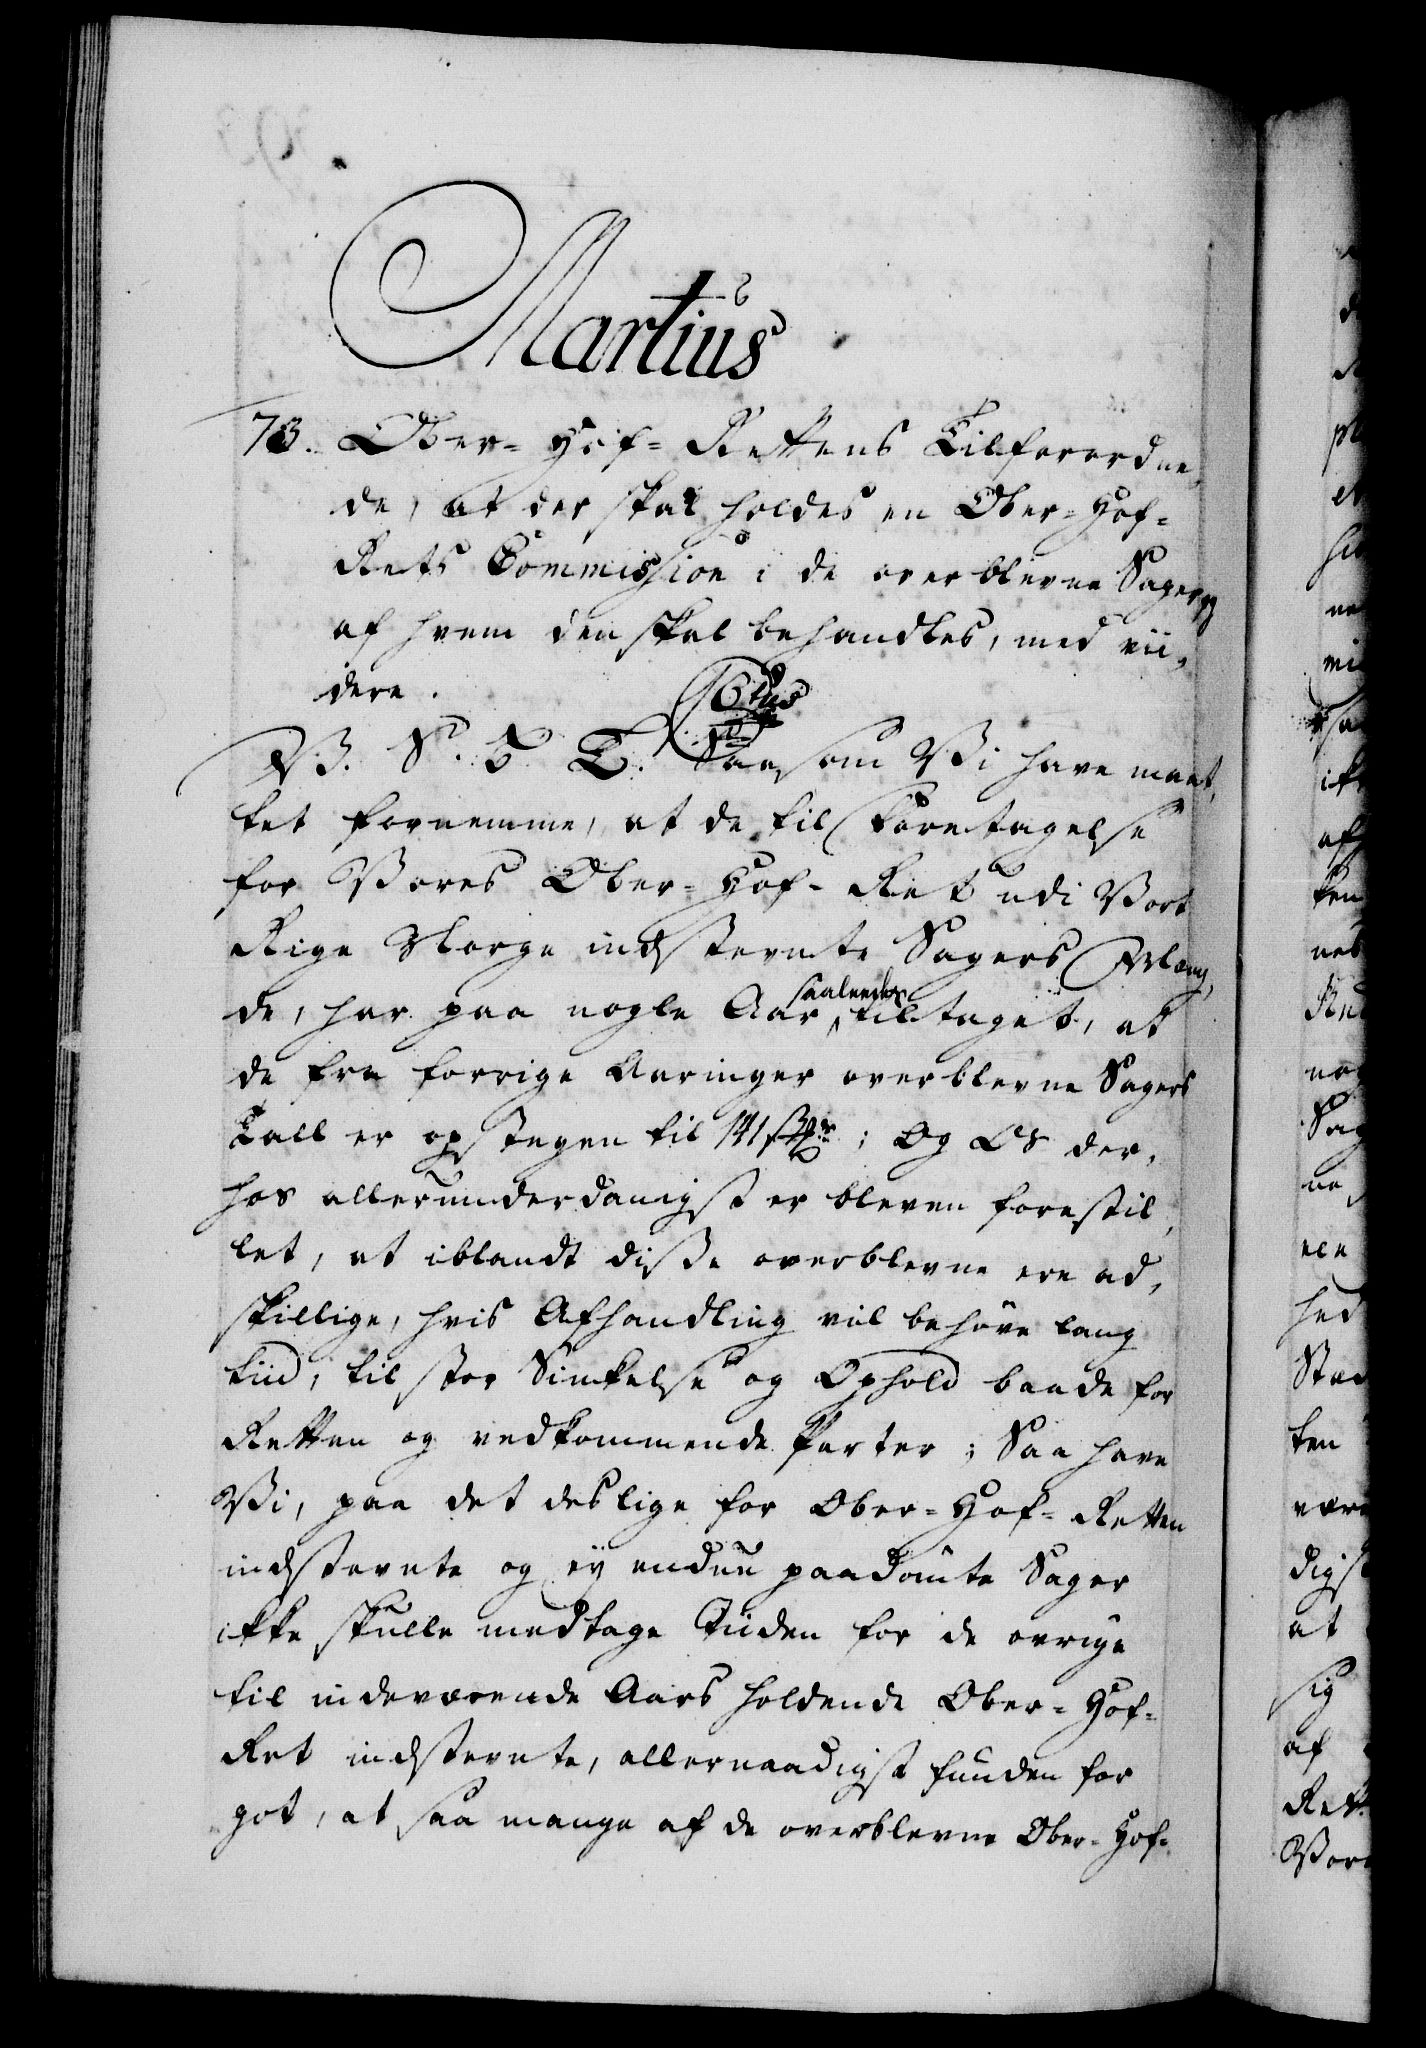 Martius
73. Ober-Hof-Rettens Tilforordne,
de, at der skal holdes en Ober-Hof-
Rets Commission i de overblevne Sager og
af hvem den skal behandles, med vii,
dere.
V. S. G. T. Saasom Vi have maat,
tet fornemme, at de til Foretagelse
for Vores Ober-Hof-Ret udi Vort
Rige Norge indstevnte Sagers Mæng,
de, har paa nogle Aar saaledes tiltaget, at
de fra forrige Aaringer overblevne Sagers
Tall er opstegen til 141 ; Og Os der,
hos allerunderdanigst er bleven forestil,
let, at iblandt disse overblevne ere ad,
skillige, hvis Afhandling vil behöve lang
tiid, til stor Sinkelse og Ophold baade for
Retten og vedkommende Parter; Saa have
Vi, paa det deslige for Ober-Hof-Retten
indstevnte og ey endnu paadömte Sager
ikke skulle medtage Tiiden for de övrige
til indeværende Aars holdende Ober-Hof-
Ret indstevnte, allernaadigst funden for
got, at saa mange af de overblevne Ober-Hof-